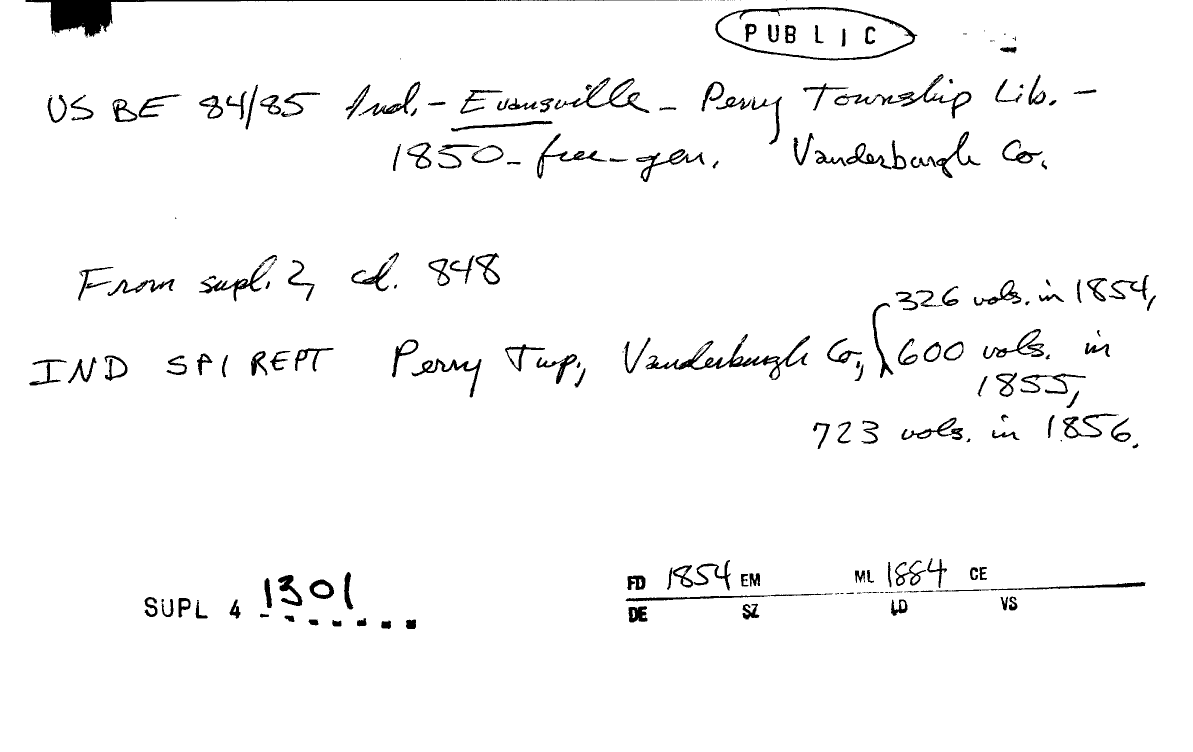 PUBLIC
US BE 84/85 Ind. - Evansville - Perry Township Lib. -
1850 - free - gen. Vanderburgh Co.
From supl. 2, cd. 848
326 vols. in 1854,
IND SPI REPT Perry Twp., Vanderburgh Co., 600 vols. in
1855,
723 vols. in 1856.
SUPL 4 1301
FD 1854 EM ML 1884 CE
DE SZ LD VS